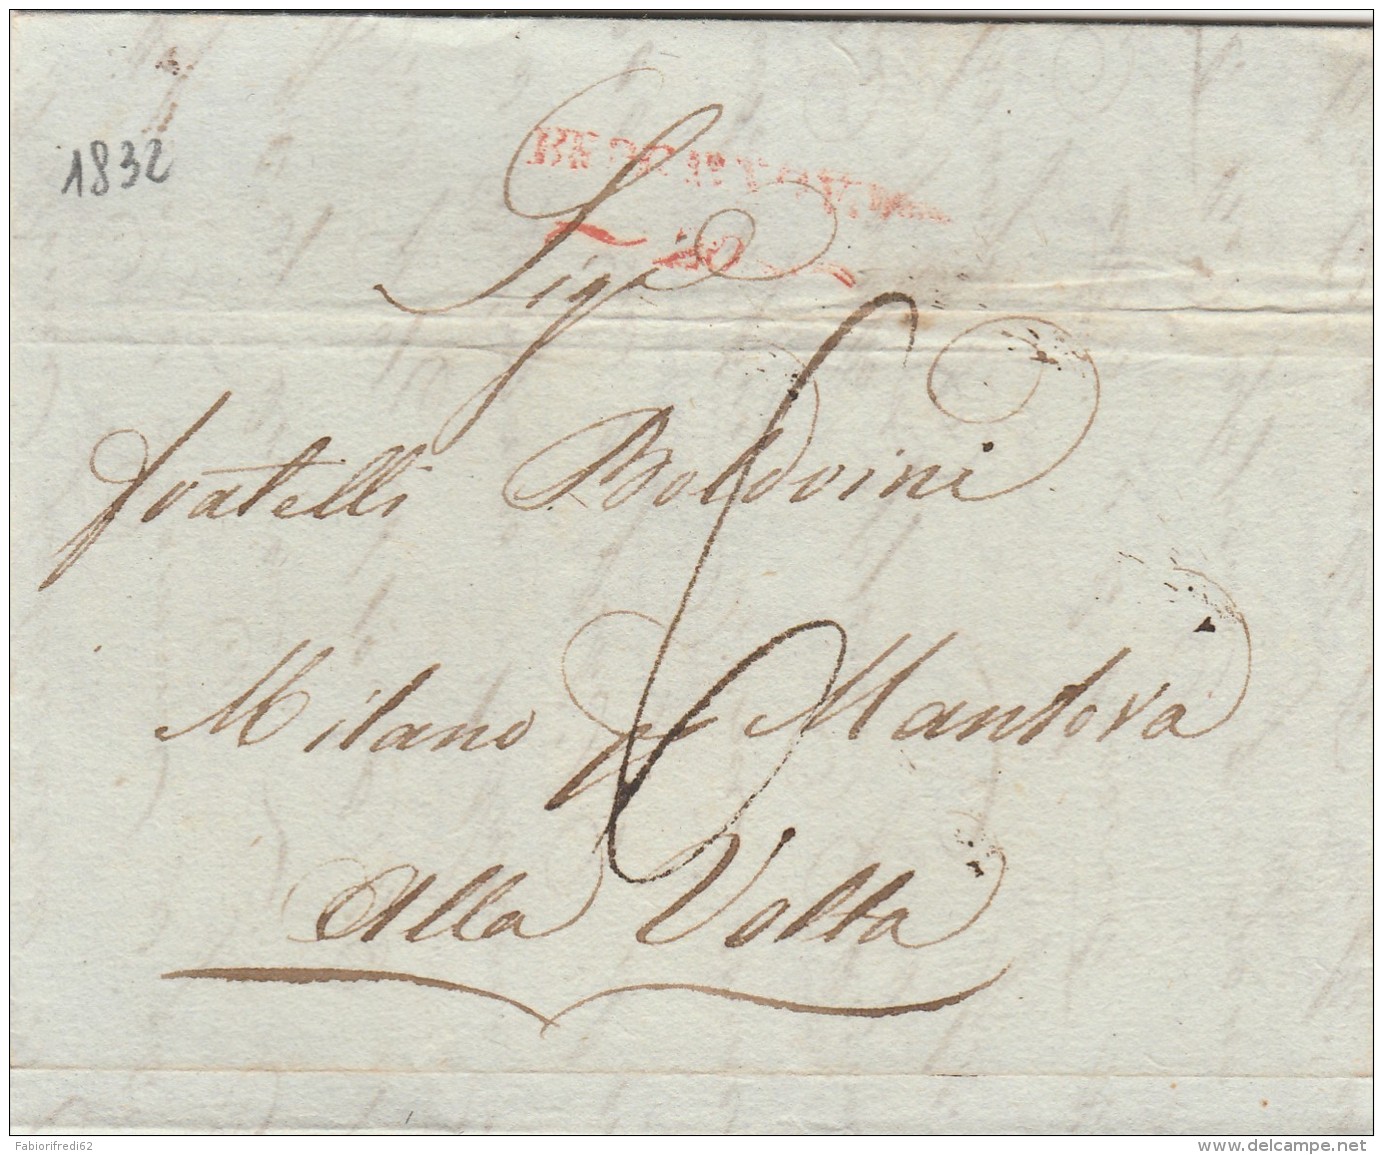 1832
20
Sigri
fratelli Boldrini
6
Milano pr Mantova
Alla Volta
Fabiorifredi62
www.delcampe.net